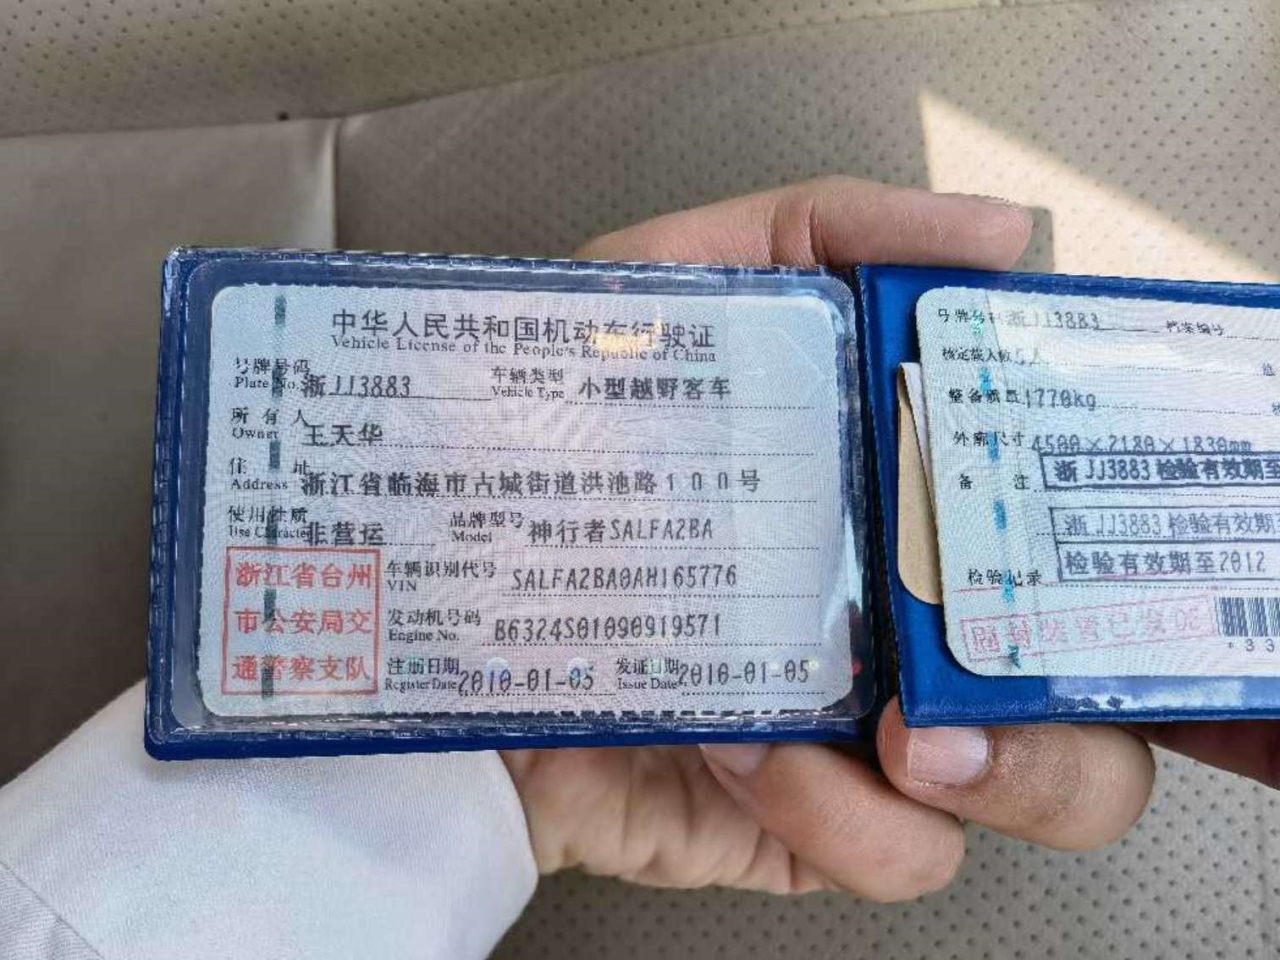 中华人民共和国机动车行驶证
Vehicle License of the People's Republic of China
号牌号码 浙JJ3883 车辆类型 小型越野客车
Plate No. Vehicle Type
所有人 王天华
Owner
住址 浙江省临海市古城街道洪池路100号
Address
使用性质 非营运 品牌型号 神行者SALFA2BA
Use Character Model
浙江省台州
市公安局交
通警察支队
车辆识别代号 SALFA2BA0AH165776
VIN
发动机号码 B6324S01090919571
Engine No.
注册日期 2010-01-05 发证日期 2010-01-05
Register Date Issue Date
号牌号码 浙JJ3883 档案编号
核定载人数 5人
整备质量 1770kg
外廓尺寸 4500×2180×1830mm
备注 浙JJ3883 检验有效期至
浙JJ3883 检验有效期
检验有效期至2012
检验记录
*33